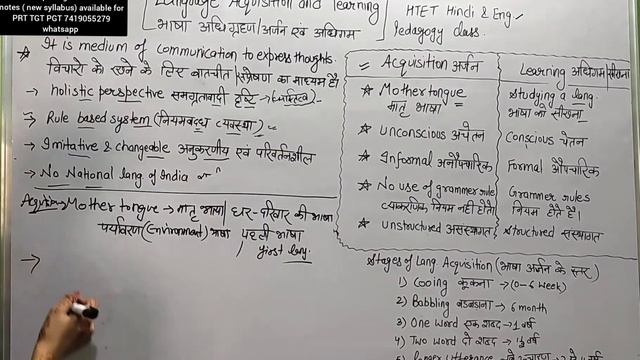 notes ( new syllabus) available for
PRT TGT PGT 7419055279
whatsapp
Language Acquisition and learning
भाषा अधिग्रहण/अर्जन एवं अधिगम
HTET Hindi & Eng.
Pedagogy class.
It is medium of communication to express thoughts.
विचारो को रखने के लिए बातचीत/संप्रेषण का माध्यम है।
→ holistic perspective समग्रतावादी दृष्टि →
→ Rule based system (नियमबद्ध व्यवस्था)
→ Imitative & changeable अनुकरणीय एवं परिवर्तनशील
→ No National lang of India
Acquisition→ Mother tongue → मातृ भाषा/ घर-परिवार की भाषा
पर्यावरण (Environment) भाषा पहली भाषा
first lang.
→
= Acquisition अर्जन
★ Mother tongue
मातृ भाषा
★ unconscious अचेतन
★ Informal अनौपचारिक
★ No use of grammer rule
व्याकरणिक नियम नहीं होते
★ unstructured असंस्थागत
Learning अधिगम/सीखना
Studying a lang.
भाषा को सीखना
Conscious चेतन
Formal औपचारिक
Grammer rules
नियम होते हैं।
Structured संस्थागत
Stages of Lang Acquisition (भाषा अर्जन के स्तर)
1) Cooing कूकना → (0-6 week)
2) Babbling बड़बड़ाना → 6 month
3) One word एक शब्द → 1 वर्ष
4) Two word दो शब्द → 1½ वर्ष